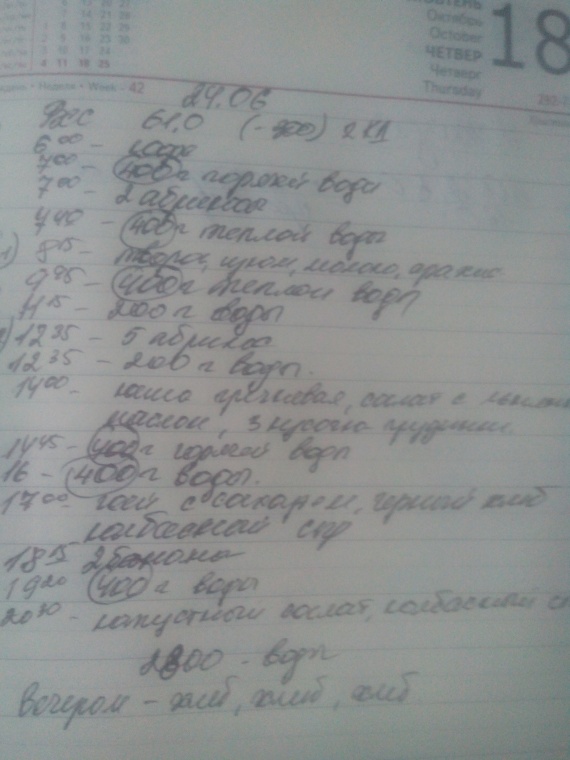 Октябрь
October
ЧЕТВЕР
Четверг
Thursday
18
Неделя • Week - 42
29.06
61,0
6 00 - кофе
7 00 - 400 г горячей воды
7 00 - 2 абрикосы
7 40 - 400 г теплой воды
8 15 - творог, изюм, молоко, арахис
9 45 - 400 г теплой воды
11 15 - 200 г воды
12 35 - 5 абрикос
12 35 - 200 г воды.
14 00 - каша гречневая, салат с
маслом, 3 кусочка грудинки
14 45 - 400 г горячей воды
16 - 400 г воды.
17 00 - кофе с сахаром, черный хлеб
колбасный сыр
18 15 2 банана
19 20 400 г воды
20 30 - капустный салат, колбасный
2800 - воды
Вечером - хлеб, хлеб, хлеб